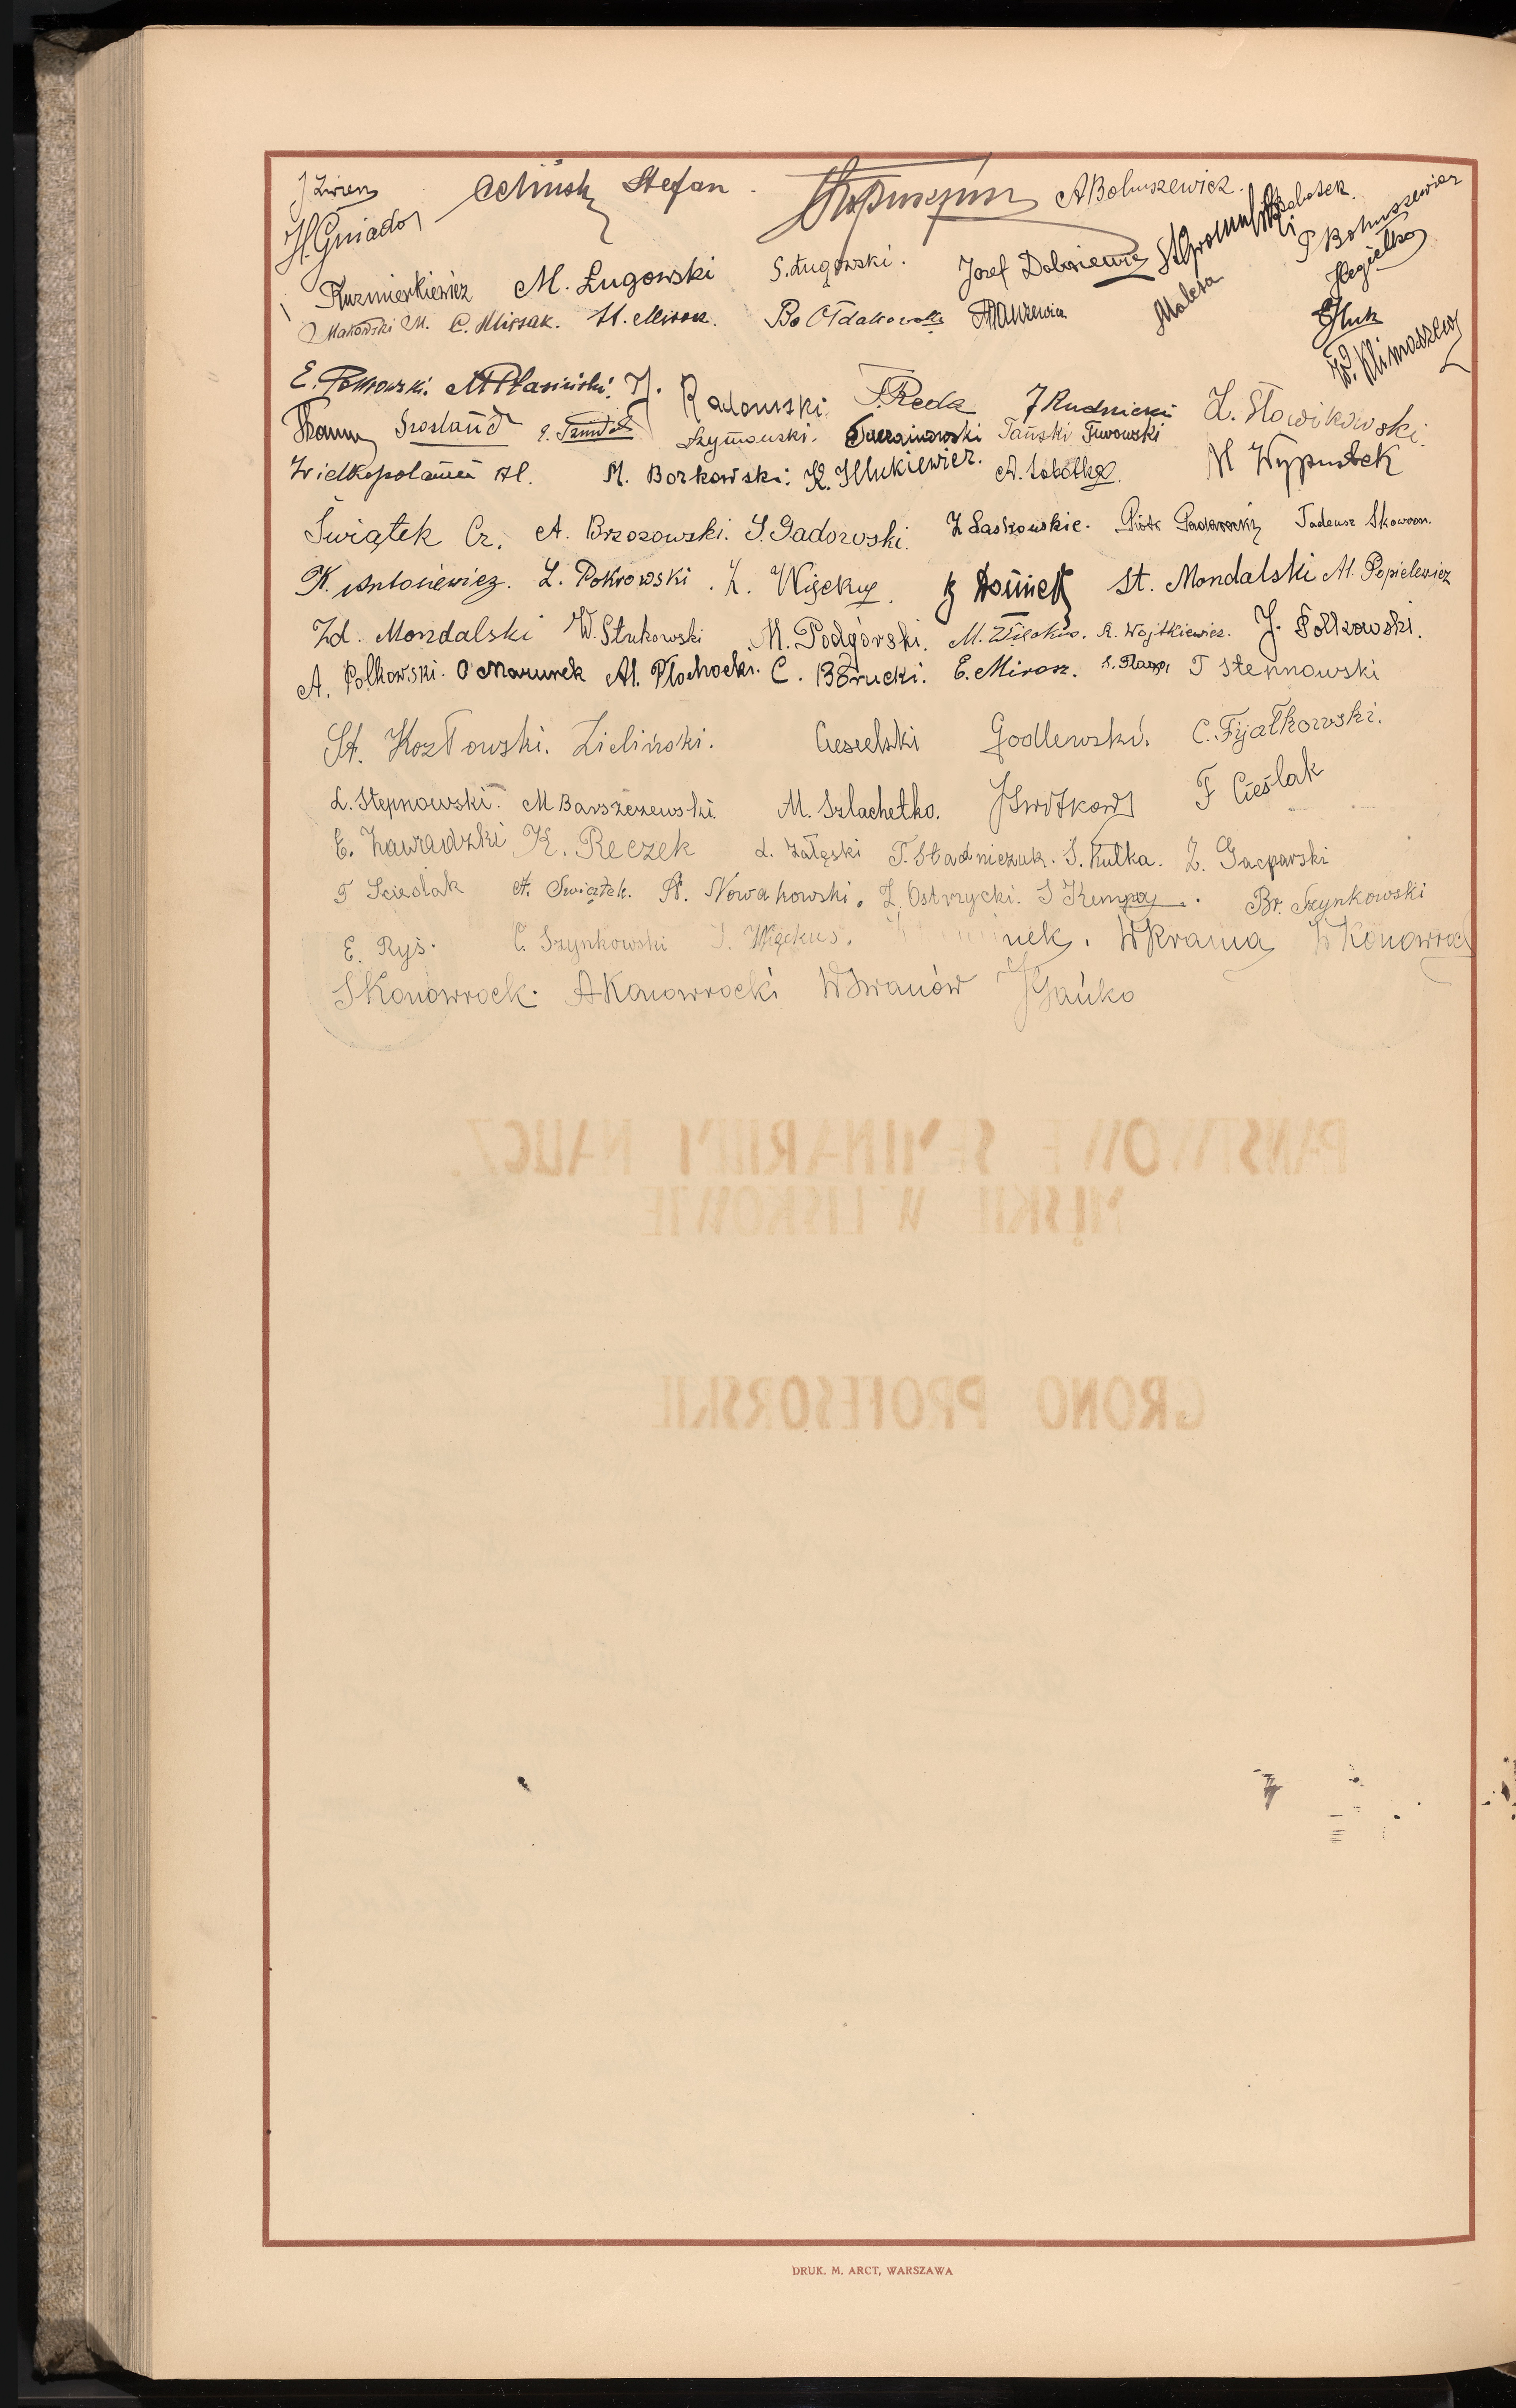 J Żwirm Stefan A Bohuszewicz.
H. Gniado P Bohuszewicz
Kuzmierkiewicz M. Ługowski S. Ługowski. Józef Gromulski Hegielko
Makowski M. C. Mirsak. St. Miros. Bo Ołdakowski Maleta Hluk
E. Pokrowski. M Płasiński. J. Radomski. F. Reda J Rudnicki Z. Słowikowski. W. Klimaszew
Szostand Szymański. Tański Turowski
Wielkopolanin Al. M. Borkowski. K. Hlukiewicz. A. Sobótka. M Wypustek
Świątek Cz. A. Brzozowski. S. Gadowski. Z Laskowskie. Piotr Tadeusz Skowron.
K. Antosiewicz. L. Pokrowski. Z. Więckus. St. Mondalski Al. Popielewicz
Zd. Mondalski W. Stukowski M. Podgórski. M. Więckus. R. Wojtkiewicz. J. Połkowski.
A. Połkowski. C Marunek Al. Płochocki. C. Borucki. E. Mirosz. T Stepnowski
St. Kozłowski. Zieliński. Ciesielski Godlewski. C. Fijałkowski.
L. Stepnowski. M Barszczewski. M. Szlachetko. F Cieślak
E. Zawadzki K. Reczek L. Załęski T. Stadniczuk. S. Kulka. Z. Gacparski
F Scieślak A. Swiątek. St. Nowakowski. Z. Ostrzycki. S Kempa. Br. Szynkowski
E. Ryś. C. Szynkowski J. Więckus. W Krama W Konowrocki
S Konowrocki. A Konowrocki W Iwanów J Gańko
PAŃSTWOWE SEMINARIUM NAUCZ.
MĘSKIE W LISKOWIE
GRONO PROFESORSKIE
DRUK. M. ARCT, WARSZAWA